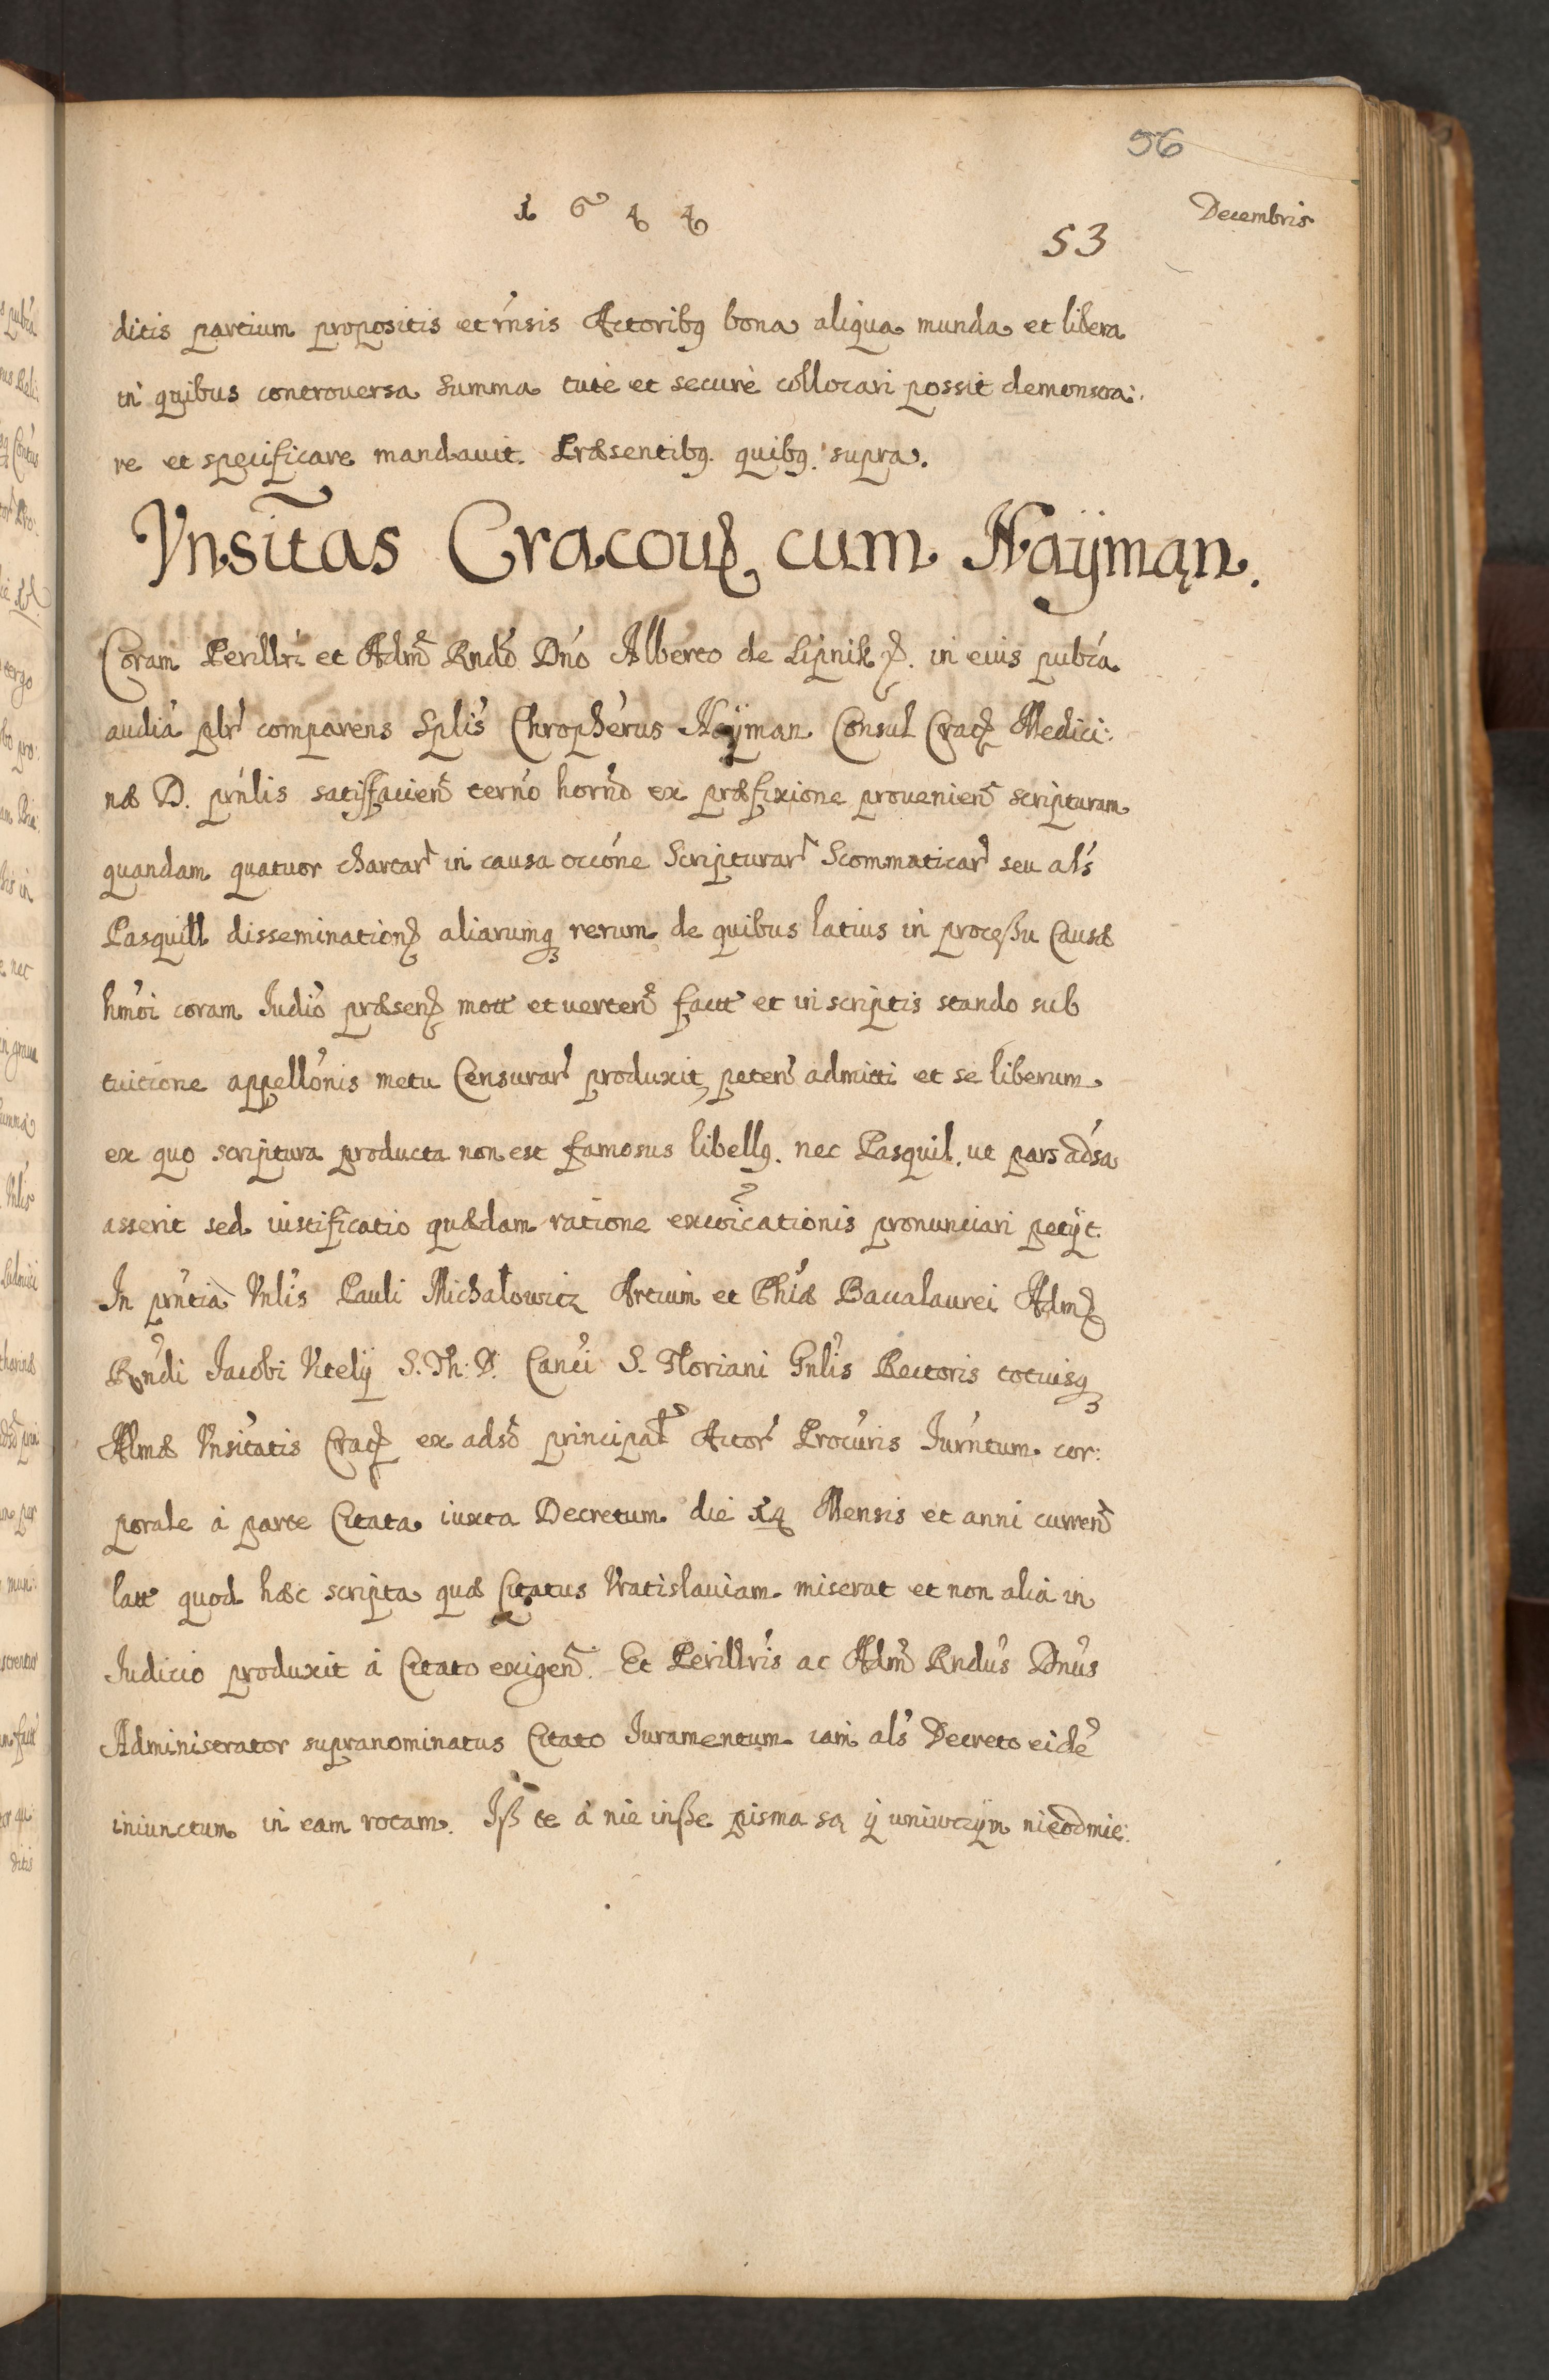 56
1644
Decembris
53
ditis partium propositis et rńsis Actoribq bona aliqua munda et libera
in quibus controuersa summa tutè et securè collocari possit demonstra:
re et specificare mandauit. Præsentibq quibq supra.
Vnsitas Cracou cum Naÿman.
Coram Perillri et Adm Rndo Dno Alberto de Lipnik. in eius pubca
audia plr comparens Splis Chropherus Naÿman Consul Crac Medici:
næ D. prnlis satisfacien terno horno ex præfixione prouenien scripturam
quandam quatuor chartar in causa occone Scripturar Scommaticar seu als
Pasquill dissemination aliarumq rerum de quibus latius in processu Causæ
hmoi coram Iudio præsen mott et verten factt et in scriptis stando sub
tuitione appellonis metu Censurar produxit, peten admitti et se liberum
ex quo scriptura producta non est famosus libellq. nec Pasquil. ut pars adsa
asserit sed iustificatio quædam ratione exvoicationis pronunciari petÿt.
In prntia Vnlis Pauli Michałowicz Artium et Phiæ Baccalaurei Adm
Rndi Jacobi Vitelÿ S. Th: D. Canci S. Floriani Gnlis Rectoris totiusq
Almæ Vnsitatis Crac ex adso principal Actor Procuris Iurntum cor:
porale à parte Citata iuxta Decretum die 14 Mensis et anni curren
latt quod hæc scripta quæ Citatus Vratislauiam miserat et non alia in
Iudicio produxit à Citato exigen. Et Perillris ac Adm Rndus Dnus
Administrator supranominatus Citato Iuramentum iam als Decreto eide
iniunctum in eam rotam. Iß te á nie inße pisma są ÿ vniwczÿm nieodmie: